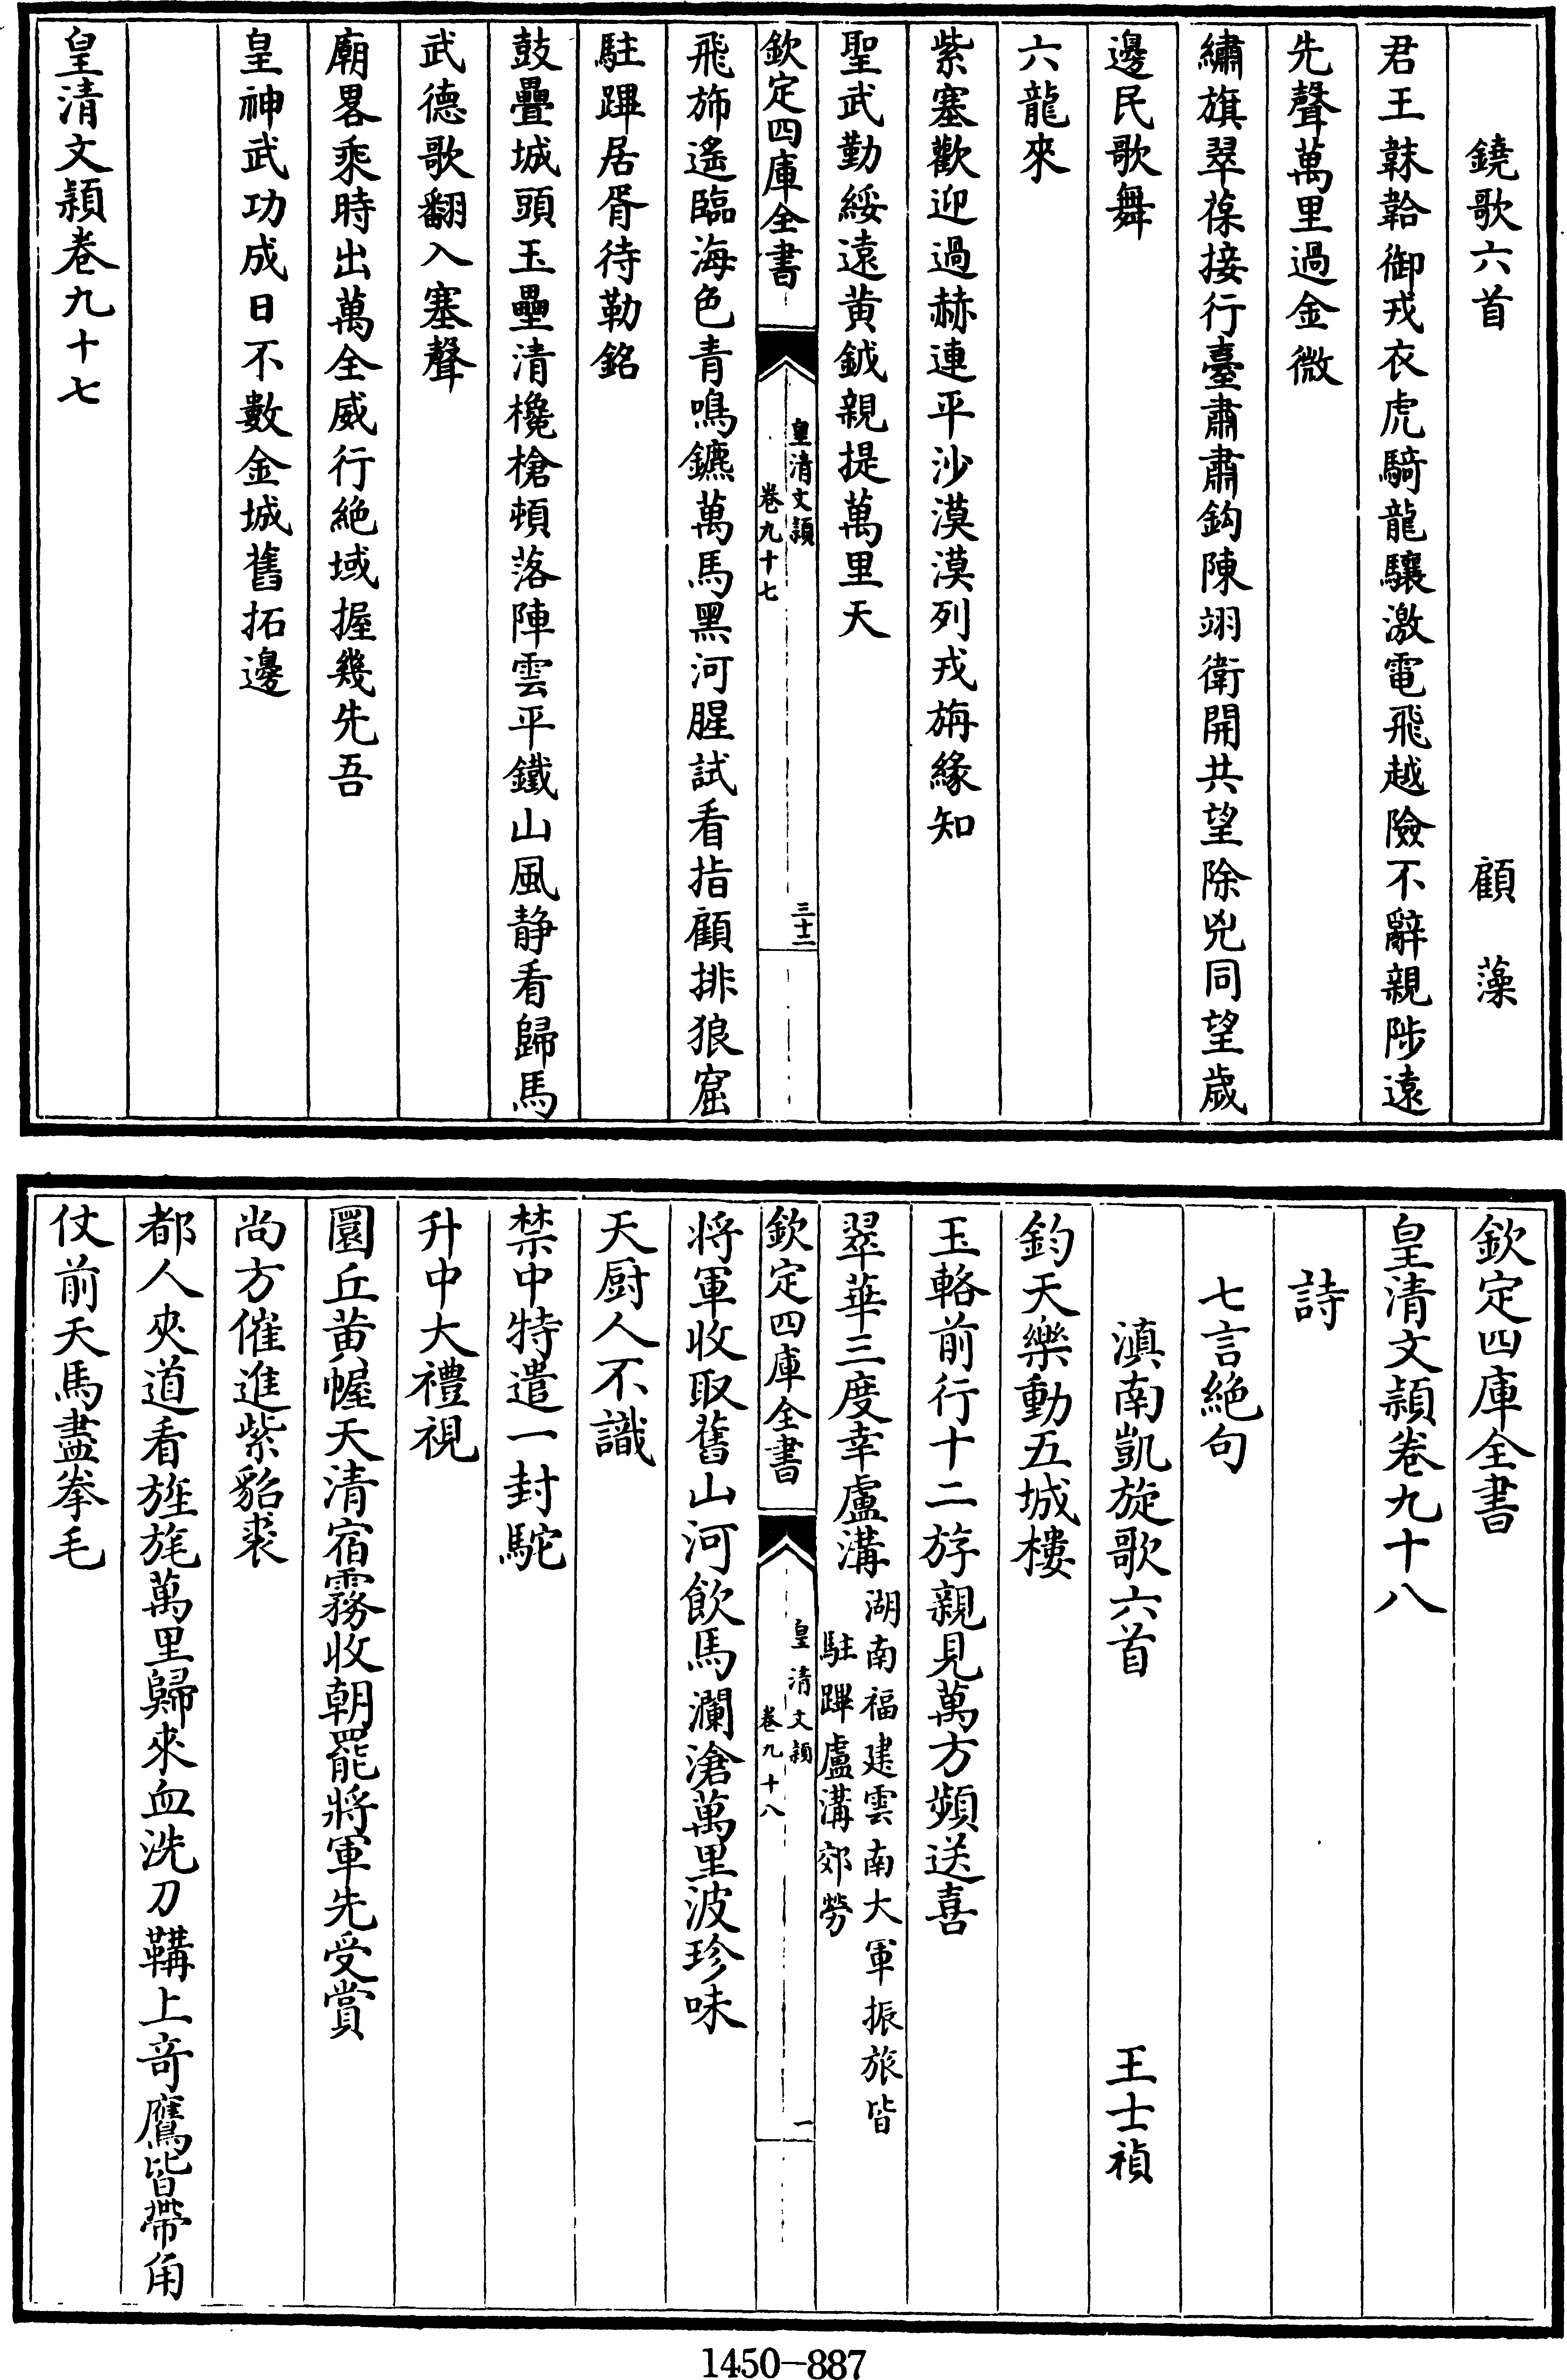 鐃歌六首　顧藻
君王韎韐御戎衣虎騎龍驤激電飛越險不辭親陟遠
先聲萬里過金微
繡旗翠葆接行臺肅肅鈎陳翊衛開共望除兇同望歲
邊民歌舞
六龍來
紫塞歡迎過赫連平沙漠漠列戎旃緣知
聖武勤綏遠黃鉞親提萬里天
欽定四庫全書
皇清文穎
卷九十七
三十二
飛斾遙臨海色青鳴鑣萬馬黑河腥試看指顧排狼窟
駐蹕居胥待勒銘
鼓疊城頭玉壘清欃槍頓落陣雲平鐵山風靜看歸馬
武德歌翻入塞聲
廟畧乘時出萬全威行絶域握幾先吾
皇神武功成日不數金城舊拓邊
皇清文穎卷九十七
欽定四庫全書
皇清文穎卷九十八
詩
七言絶句
滇南凱旋歌六首　王士禎
鈞天樂動五城樓
玉輅前行十二斿親見萬方頻送喜
翠華三度幸盧溝湖南福建雲南大軍振旅皆
駐蹕盧溝郊勞
欽定四庫全書
皇清文穎
卷九十八
一
將軍收取舊山河飲馬瀾滄萬里波珍味
天厨人不識
禁中特遣一封駝
升中大禮視
圜丘黃幄天清宿霧收朝罷將軍先受賞
尚方催進紫貂裘
都人夾道看旌旄萬里歸來血洗刀鞲上奇鷹皆帶角
仗前天馬盡拳毛
1450-887